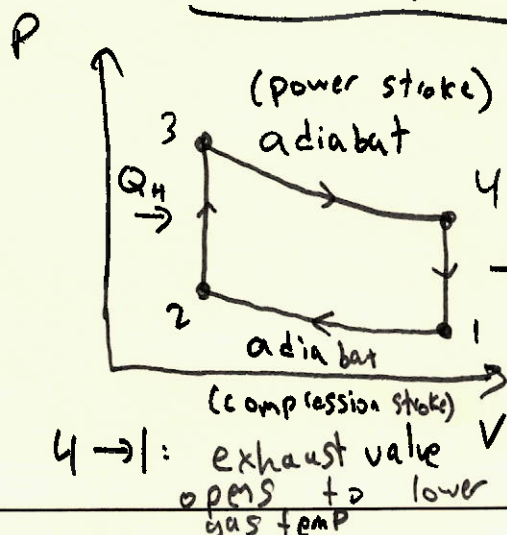 P
(power stroke)
adiabat
3
4
Q_H
→
2
1
adiabat
(compression stroke)
V
4 → 1: exhaust valve
opens to lower
gas temp